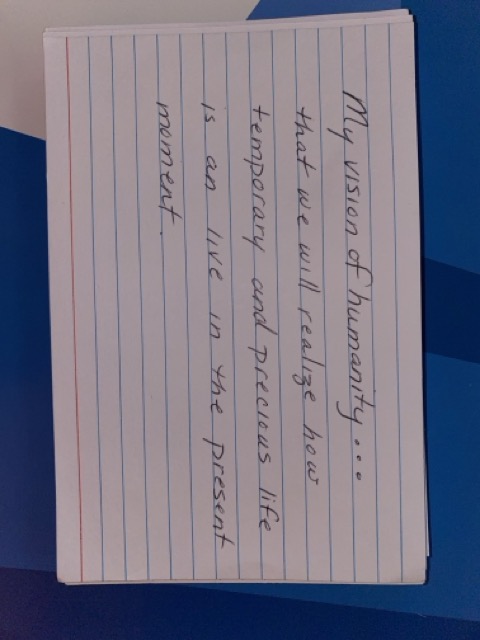 My vision of humanity...
that we will realize how
temporary and precious life
is an live in the present
moment.